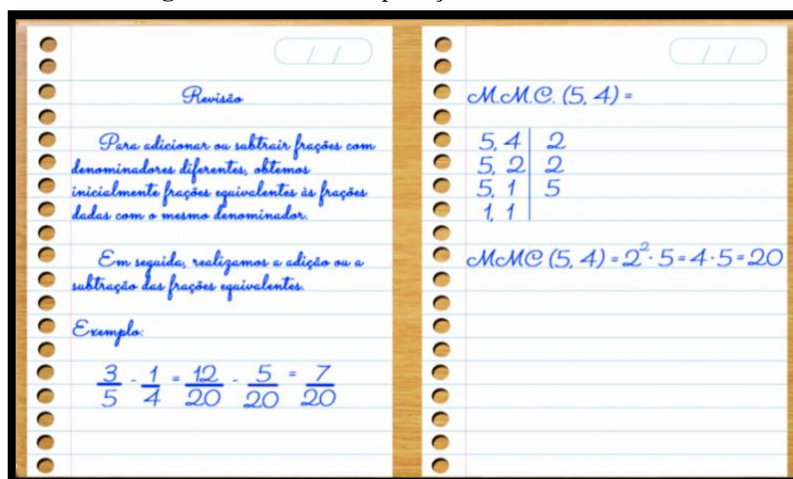 / /
Revisão
Para adicionar ou subtrair frações com
denominadores diferentes, obtemos
inicialmente frações equivalentes às frações
dadas com o mesmo denominador.
Em seguida, realizamos a adição ou a
subtração das frações equivalentes.
Exemplo:
3/5 - 1/4 = 12/20 - 5/20 = 7/20
/ /
M.M.C. (5, 4) =
5, 4 | 2
5, 2 | 2
5, 1 | 5
1, 1 |
MMC (5, 4) = 2² · 5 = 4 · 5 = 20